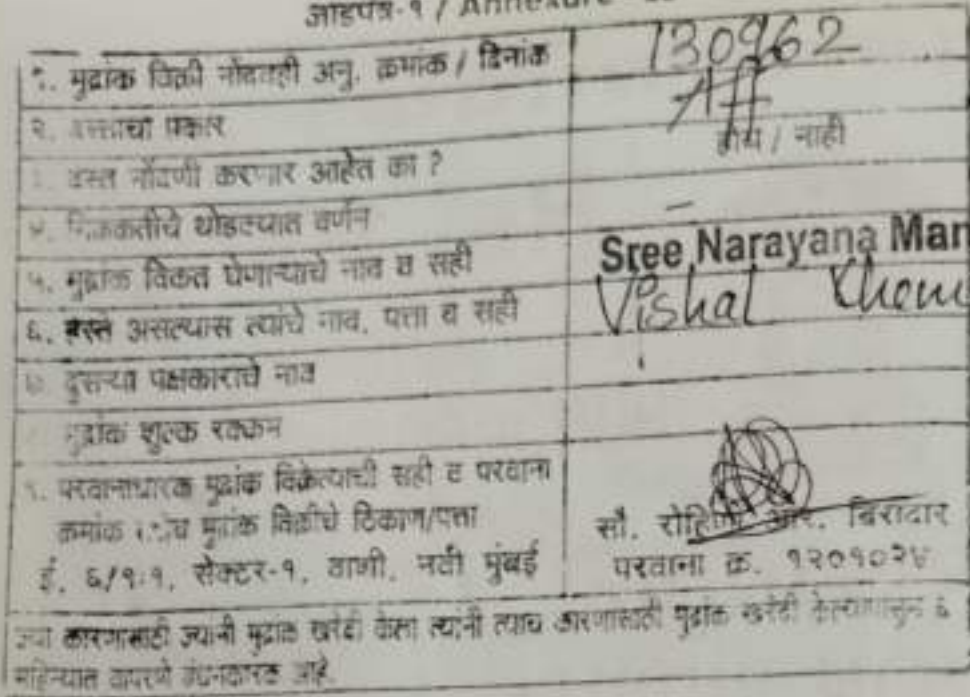 जोडपत्र-१ / Annexure
१. मुद्रांक विक्री नोंदवही अनु. क्रमांक / दिनांक 130962
२. दस्ताचा प्रकार Aff
दस्त नोंदणी करणार आहेत का ? होय / नाही
४. मिळकतीचे थोडक्यात वर्णन -
५. मुद्रांक विकत घेणाऱ्याचे नाव व सही Sree Narayana Man
६. हस्ते असल्यास त्यांचे नाव, पत्ता व सही Vishal
७. दुसऱ्या पक्षकाराचे नाव
मुद्रांक शुल्क रक्कम
९. परवानाधारक मुद्रांक विक्रेत्याची सही व परवाना
क्रमांक तसेच मुद्रांक विक्रीचे ठिकाण/पत्ता सौ. रोहिणी आर. बिरादार
ई. ६/१:१, सेक्टर-१, वाशी, नवी मुंबई परवाना क्र. १२०१०२४
ज्या कारणासाठी ज्यांनी मुद्रांक खरेदी केला त्यांनी त्याच कारणासाठी मुद्रांक खरेदी केल्यापासून ६
महिन्यात वापरणे बंधनकारक आहे.